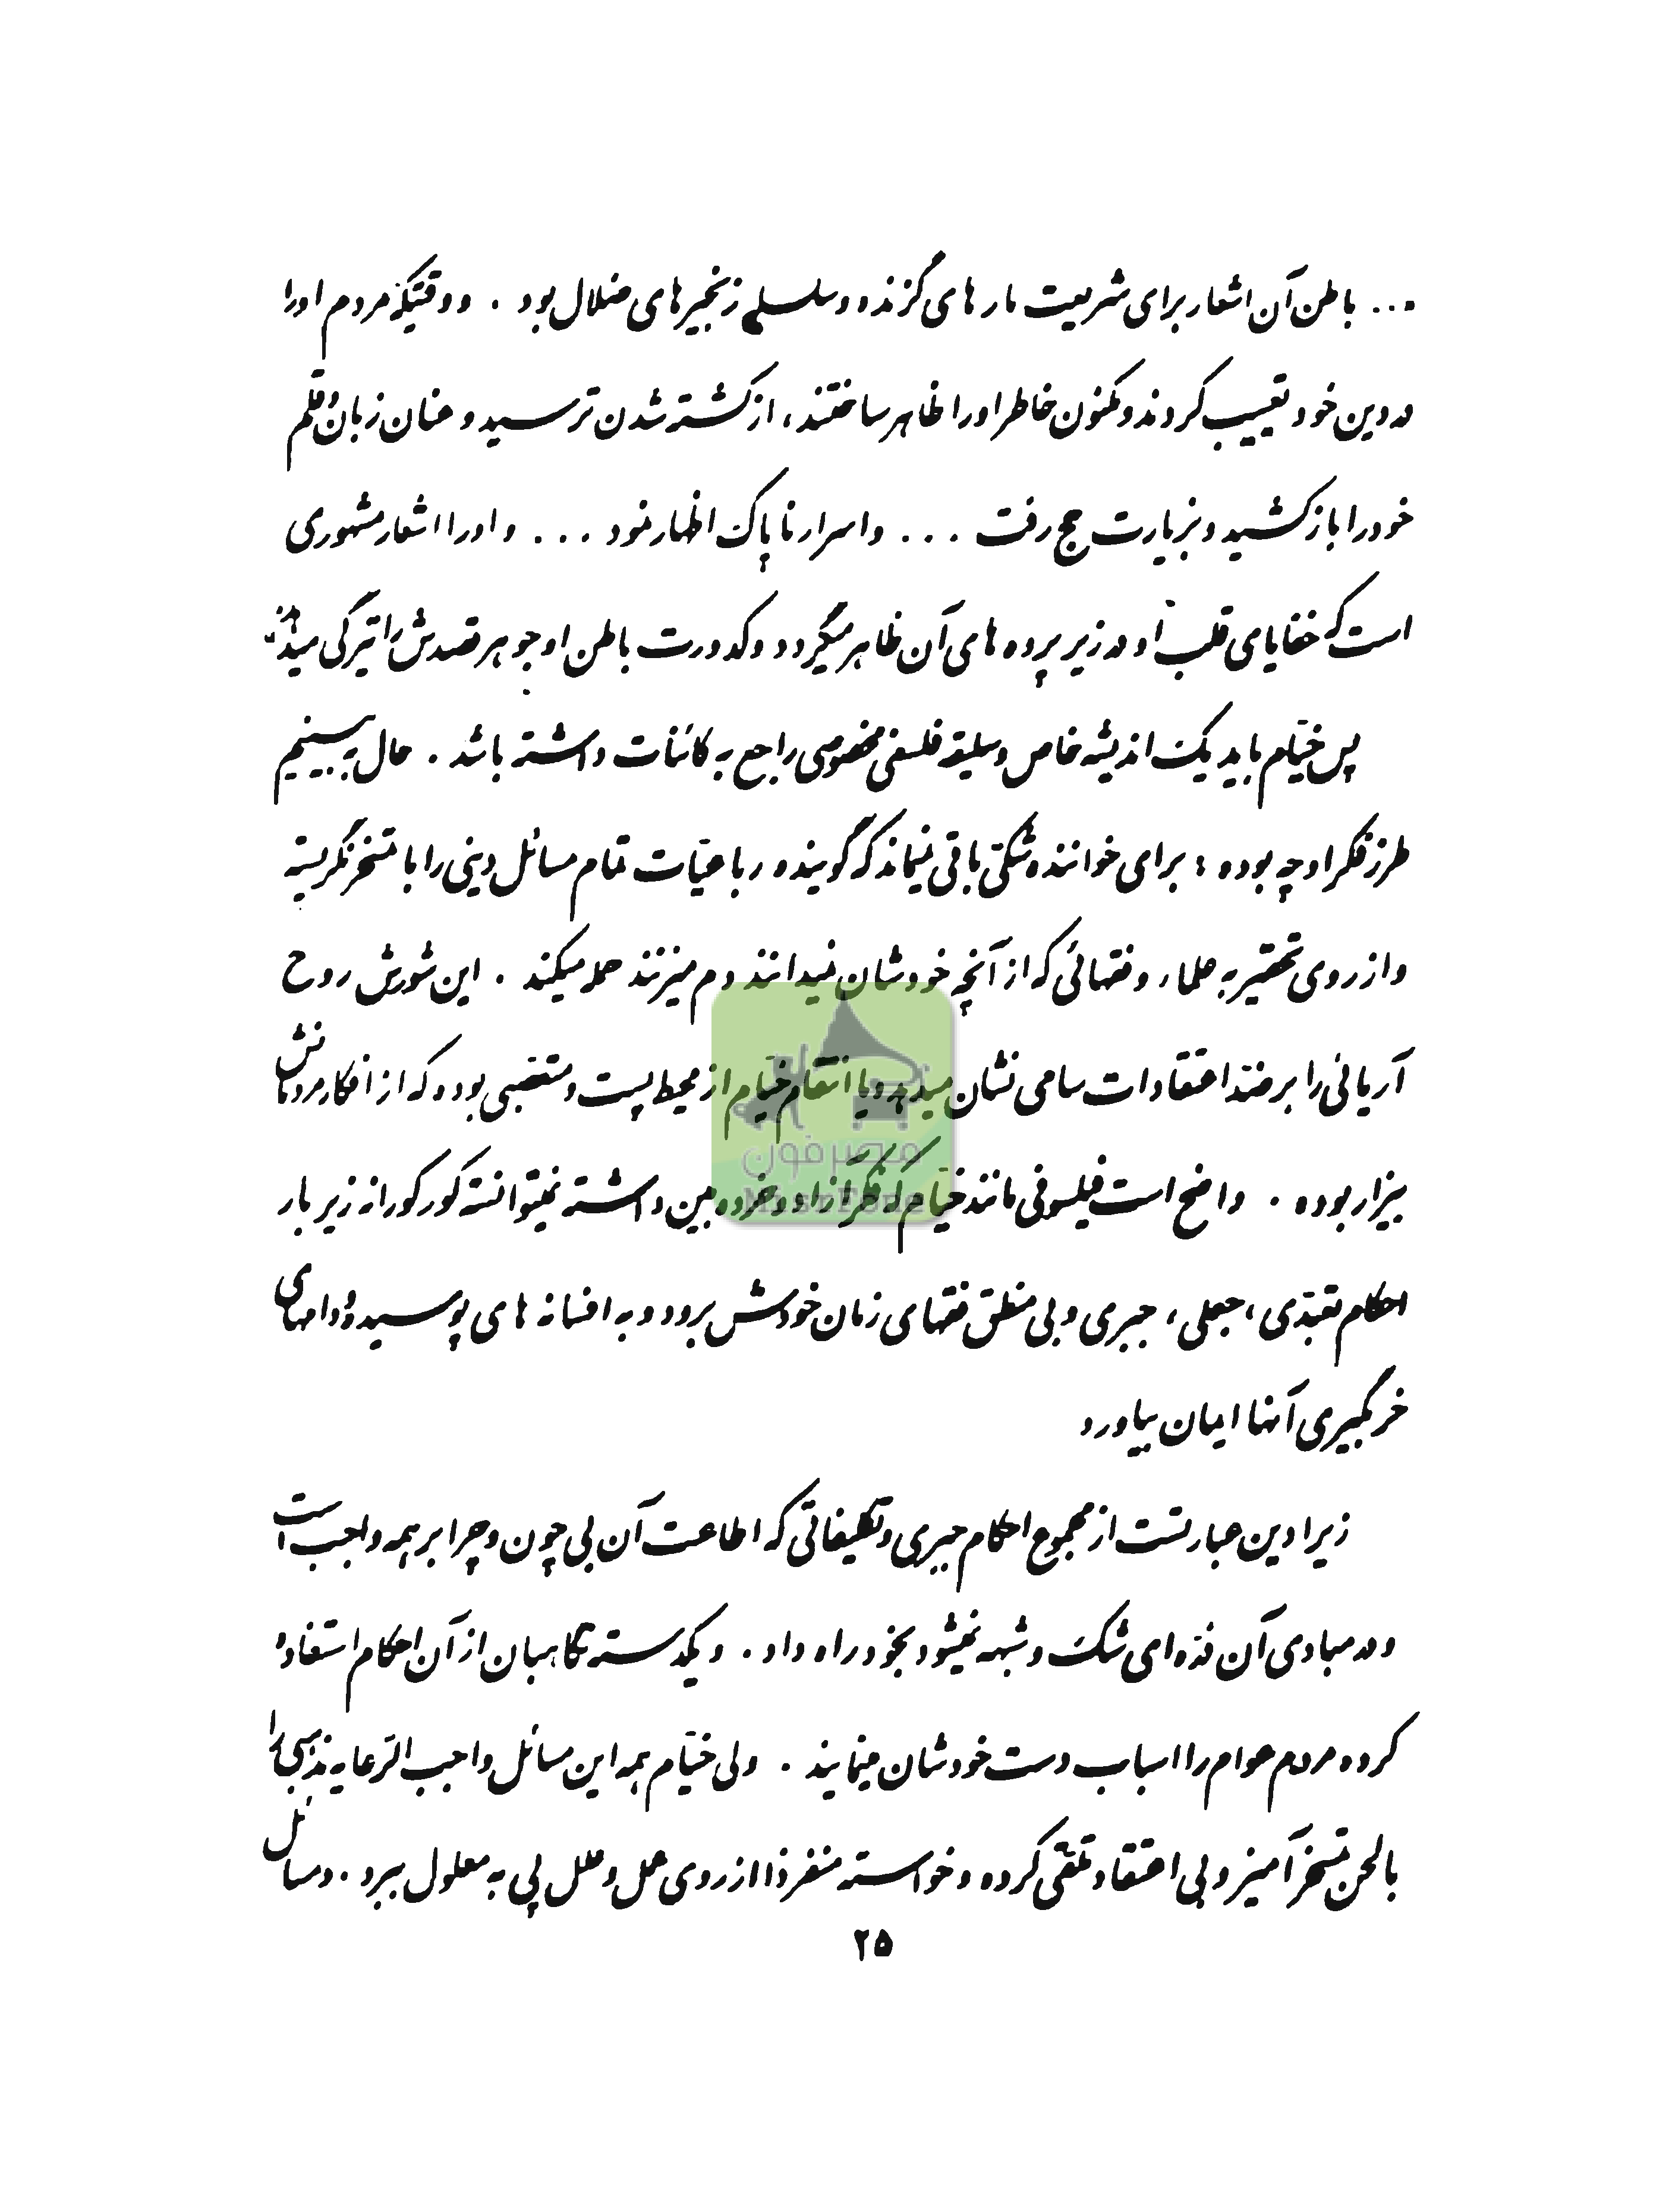 ... باطن آن اشعار برای شریعت مارهای گزنده و سلسله زنجیرهای ضلال بود . و وقتیکه مردم او را
در دین خود تعییب کردند و مکنون خاطر او را ظاهر ساختند ، از کشته شدن ترسید و عنان زبان و قلم
خود را باز کشید و بزیارت حج رفت ... و اسرار ناپاک اظهار نمود ... و او را اشعار مشهوری
است که خفایای قلب او در زیر پرده های آن ظاهر میگردد و کدورت باطن او جوهر قصدش را تیرگی میدهد
پس خیّام باید یک اندیشه خاص و سلیقه فلسفی مخصوصی راجع به کائنات داشته باشد . حال به بینیم
طرز فکر او چه بوده : برای خواننده شکی باقی نمیماند که گوینده رباعیّات تمام مسائل دینی را با تمسخر نگریسته
و از روی تحقیر به علماء و فقهائی که از آنچه خودشان نمیدانند دم میزنند حمله میکند . این شورش روح
آریائی را بر ضد اعتقادات سامی نشان میدهد و یا انتقام خیّام از محیط پست و متعصبی بوده که از افکار مردمانش
بیزار بوده . واضح است فیلسوفی مانند خیّام که فکر آزاد و خرده بین داشته نمیتوانسته کورکورانه زیر بار
احکام تعبّدی ، جعلی ، جبری و بی منطق فقهای زمان خودش برود و به افسانه های پوسیده و دامهای
خر بگیری آنها ایمان بیاورد
زیرا دین عبارتست از مجموع احکام جبری و تکلیفاتی که اطاعت آن بی چون و چرا بر همه واجب است
و در مبادی آن ذرّه ای شک و شبهه نمیشود بخود راه داد . و یکدسته نگاهبان از آن احکام استفاده
کرده مردم عوام را اسباب دست خودشان مینمایند . ولی خیّام همه این مسائل واجب الرّعایه مذهبی را
با لحن تمسخر آمیز و بی اعتقاد تلقّی کرده و خواسته منفرداً از روی عمل و علل پی به معلول ببرد . و مسائل
۲۵
مصرفون
MisrFone